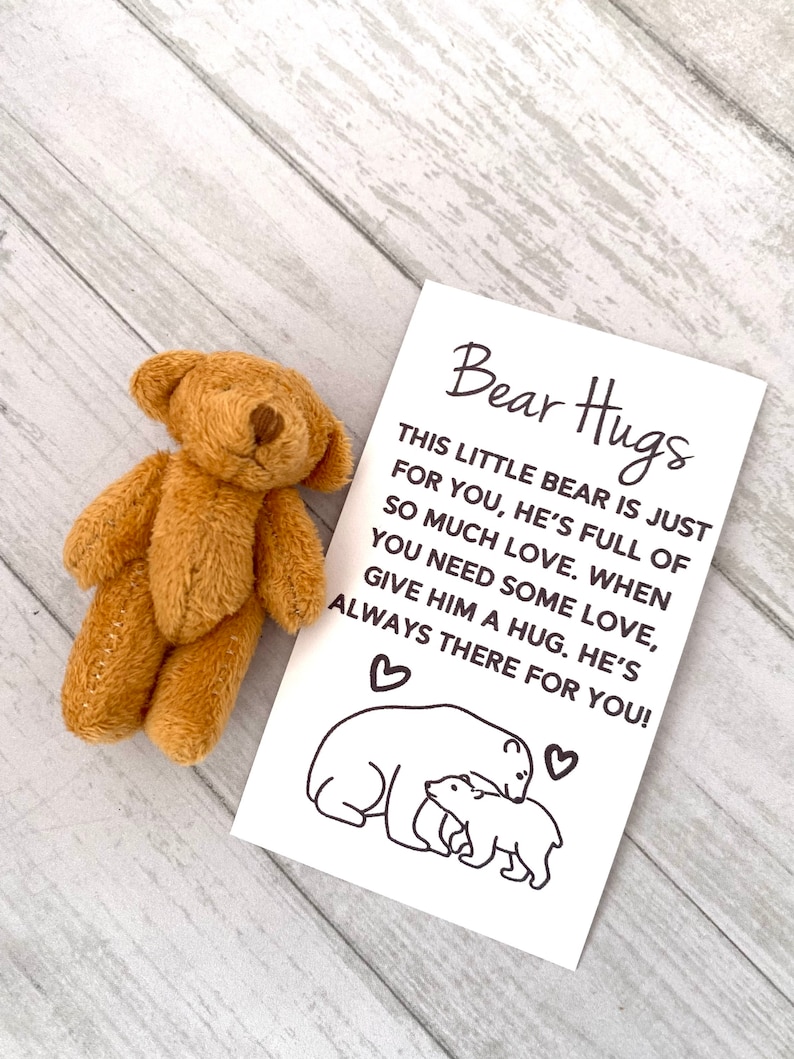 Bear Hugs
THIS LITTLE BEAR IS JUST
FOR YOU, HE'S FULL OF
SO MUCH LOVE. WHEN
YOU NEED SOME LOVE,
GIVE HIM A HUG. HE'S
ALWAYS THERE FOR YOU!